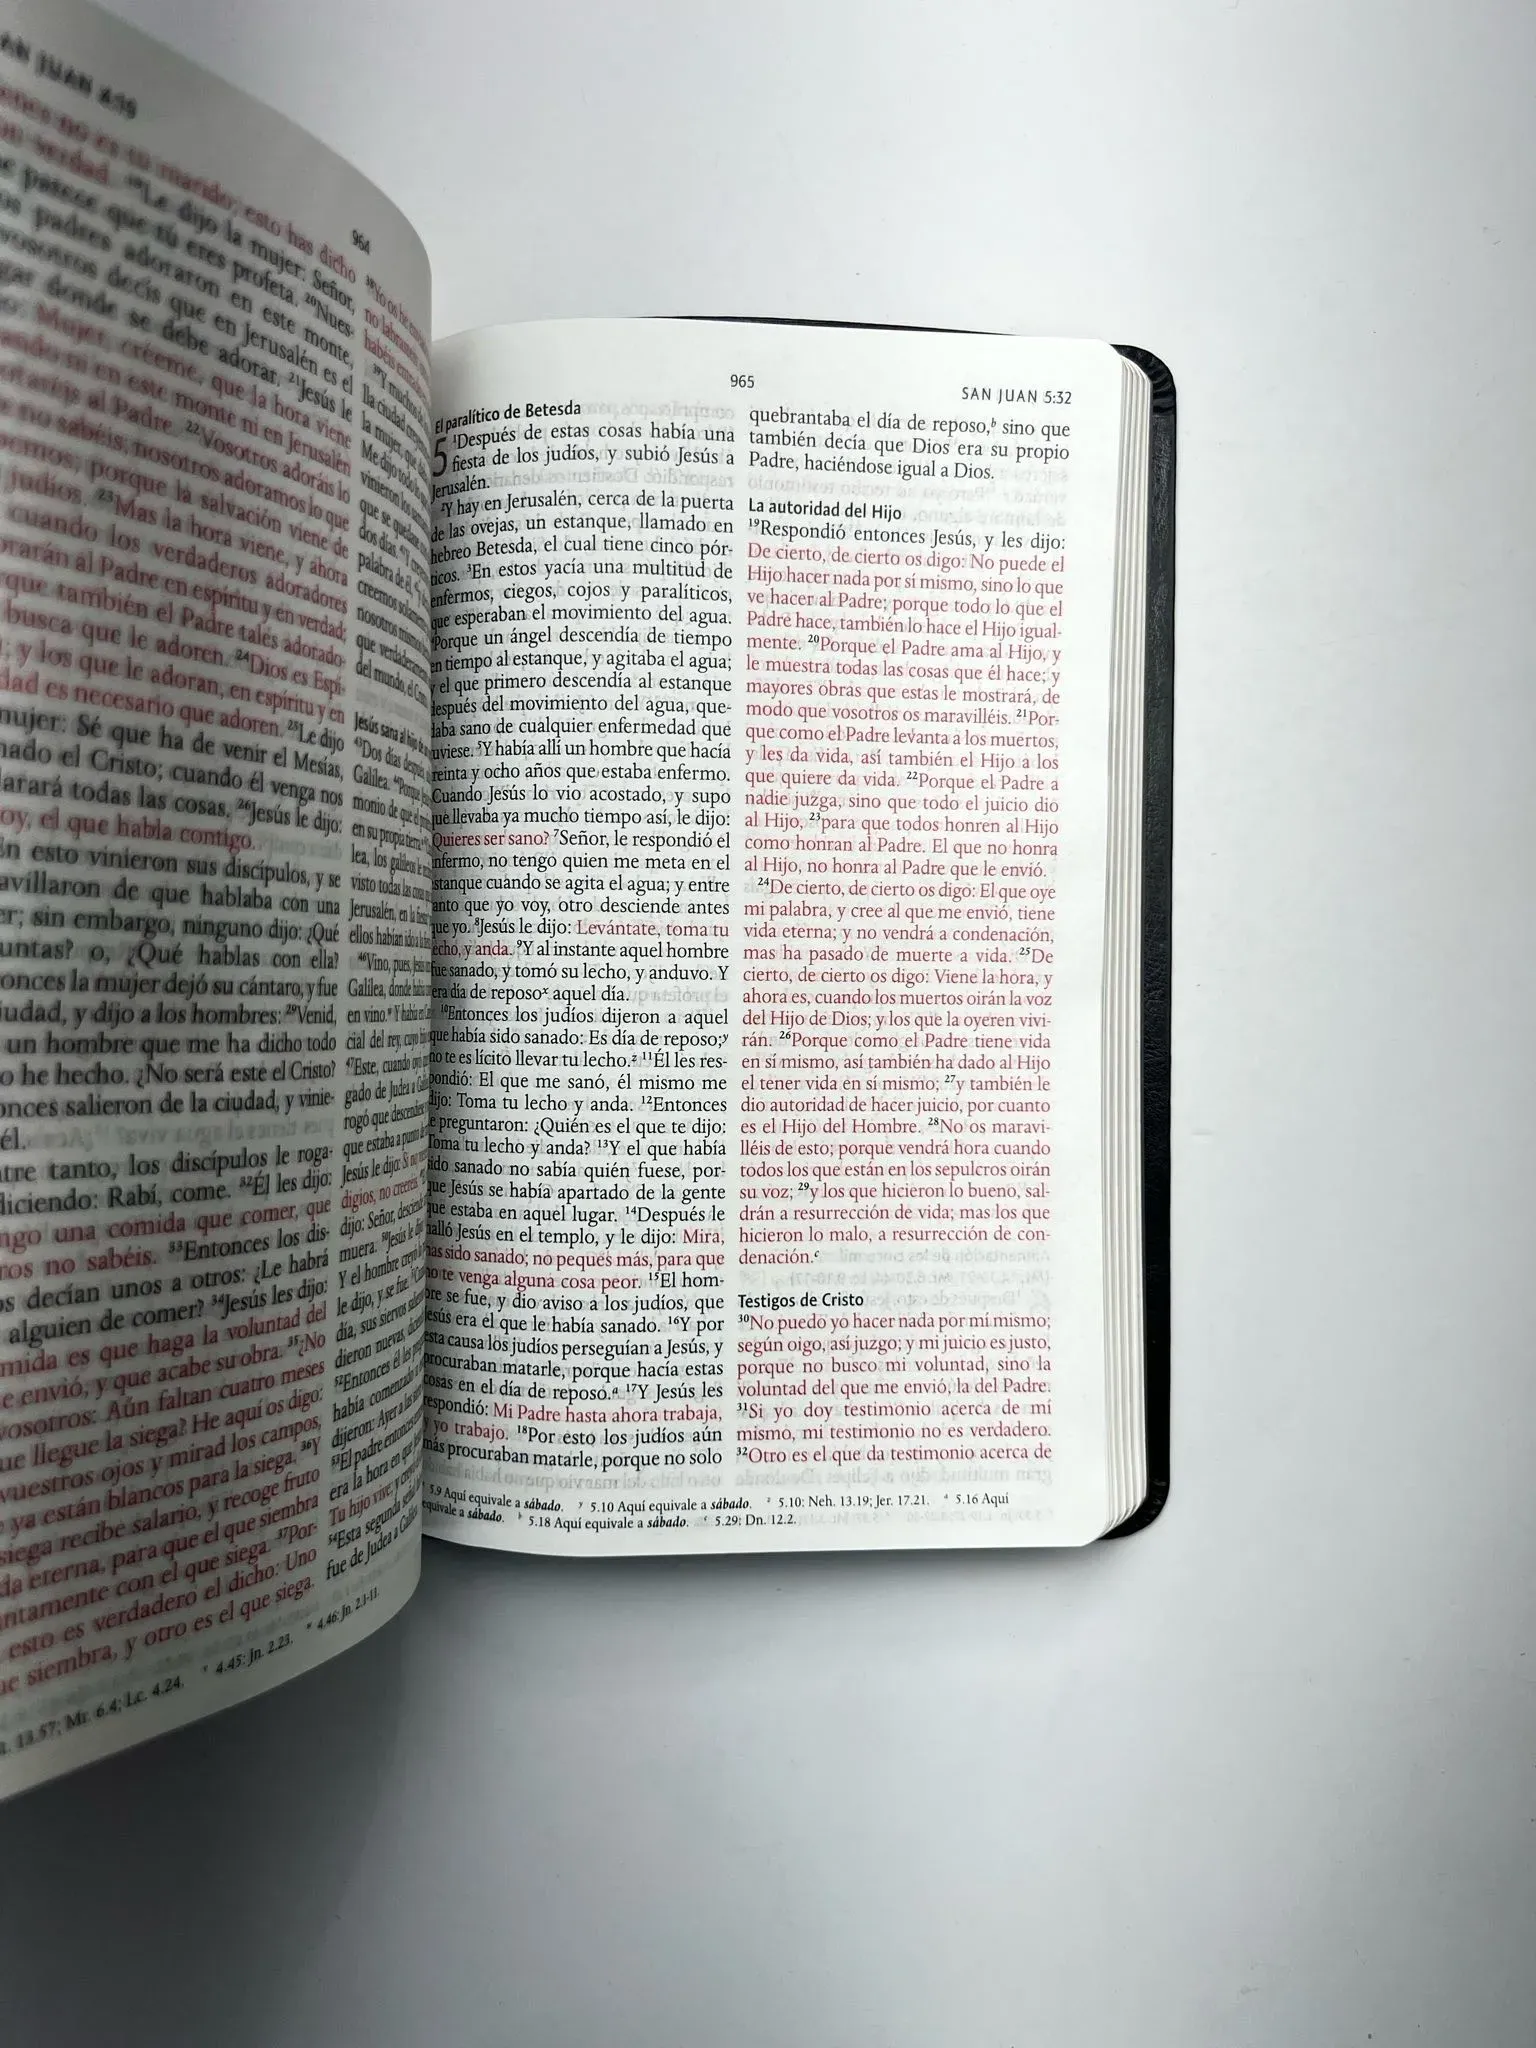 SAN JUAN 4:19
964
no es tu marido; esto has dicho
verdad. ¹⁹Le dijo la mujer: Señor,
parece que tú eres profeta. ²⁰Nues-
padres adoraron en este monte,
vosotros decís que en Jerusalén es el
donde se debe adorar. ²¹Jesús le
Mujer, créeme, que la hora viene
ni en este monte ni en Jerusalén
al Padre. ²²Vosotros adoráis lo
no sabéis; nosotros adoramos lo que
porque la salvación viene de
judíos. ²³Mas la hora viene, y ahora
cuando los verdaderos adoradores
al Padre en espíritu y en verdad;
también el Padre tales adorado-
busca que le adoren. ²⁴Dios es Espí-
y los que le adoran, en espíritu y en
es necesario que adoren. ²⁵Le dijo
mujer: Sé que ha de venir el Mesías,
el Cristo; cuando él venga nos
todas las cosas. ²⁶Jesús le dijo:
el que habla contigo.
En esto vinieron sus discípulos, y se
de que hablaba con una
sin embargo, ninguno dijo: ¿Qué
o, ¿Qué hablas con ella?
la mujer dejó su cántaro, y fue
y dijo a los hombres: ²⁹Venid,
un hombre que me ha dicho todo
he hecho. ¿No será este el Cristo?
salieron de la ciudad, y vinie-
él.
tanto, los discípulos le roga-
diciendo: Rabí, come. ³²Él les dijo:
una comida que comer, que
no sabéis. ³³Entonces los dis-
decían unos a otros: ¿Le habrá
alguien de comer? ³⁴Jesús les dijo:
es que haga la voluntad del
envió, y que acabe su obra. ³⁵¿No
vosotros: Aún faltan cuatro meses
que llegue la siega? He aquí os digo:
vuestros ojos y mirad los campos,
ya están blancos para la siega. ³⁶Y
siega recibe salario, y recoge fruto
eterna, para que el que siembra
con el que siega. ³⁷Por-
esto es verdadero el dicho: Uno
siembra, y otro es el que siega.
³⁸Yo os he
no
habéis
³⁹Y muchos
la mujer,
Me dijo
que se
dos días.
palabra de él,
creemos
nosotros
que
del mundo, el
Jesús sana al hijo de
⁴³Dos días después,
Galilea. ⁴⁴Porque
de que el
en su propia tierra.
los galileos le
visto todas las cosas
Jerusalén, en la
ellos habían ido a la
⁴⁶Vino, pues, Jesús
Galilea, donde había
en vino. Y había en
cial del rey, cuyo
⁴⁷Este, cuando oyó
gado de Judea a
rogó que descendiese
que estaba a punto de
Jesús le dijo: Si no
digios, no creeréis.
dijo: Señor, desciende
muera. ⁵⁰Jesús le dijo
Y el hombre creyó la
le dijo, y se fue.
día, sus siervos
dieron nuevas,
⁵²Entonces él les
había comenzado a
dijeron: Ayer a las
⁵³El padre entonces
era la hora en que
Tu hijo vive; y creyó
⁵⁴Esta segunda señal
fue de Judea a Galilea.
13.57; Mr. 6.4; Lc. 4.24. 4.45: Jn. 2.23. 4.46: Jn. 2.1-11.
965
SAN JUAN 5:32
El paralítico de Betesda
5 ¹Después de estas cosas había una
fiesta de los judíos, y subió Jesús a
Jerusalén.
²Y hay en Jerusalén, cerca de la puerta
de las ovejas, un estanque, llamado en
hebreo Betesda, el cual tiene cinco pór-
ticos. ³En estos yacía una multitud de
enfermos, ciegos, cojos y paralíticos,
que esperaban el movimiento del agua.
Porque un ángel descendía de tiempo
en tiempo al estanque, y agitaba el agua;
y el que primero descendía al estanque
después del movimiento del agua, que-
daba sano de cualquier enfermedad que
tuviese. ⁵Y había allí un hombre que hacía
treinta y ocho años que estaba enfermo.
Cuando Jesús lo vio acostado, y supo
que llevaba ya mucho tiempo así, le dijo:
¿Quieres ser sano? ⁷Señor, le respondió el
enfermo, no tengo quien me meta en el
estanque cuando se agita el agua; y entre
tanto que yo voy, otro desciende antes
que yo. ⁸Jesús le dijo: Levántate, toma tu
lecho, y anda. ⁹Y al instante aquel hombre
fue sanado, y tomó su lecho, y anduvo. Y
era día de reposoˣ aquel día.
¹⁰Entonces los judíos dijeron a aquel
que había sido sanado: Es día de reposo;ʸ
no te es lícito llevar tu lecho.ᶻ ¹¹Él les res-
pondió: El que me sanó, él mismo me
dijo: Toma tu lecho y anda. ¹²Entonces
le preguntaron: ¿Quién es el que te dijo:
Toma tu lecho y anda? ¹³Y el que había
sido sanado no sabía quién fuese, por-
que Jesús se había apartado de la gente
que estaba en aquel lugar. ¹⁴Después le
halló Jesús en el templo, y le dijo: Mira,
has sido sanado; no peques más, para que
no te venga alguna cosa peor. ¹⁵El hom-
bre se fue, y dio aviso a los judíos, que
Jesús era el que le había sanado. ¹⁶Y por
esta causa los judíos perseguían a Jesús, y
procuraban matarle, porque hacía estas
cosas en el día de reposo.ᵃ ¹⁷Y Jesús les
respondió: Mi Padre hasta ahora trabaja,
y yo trabajo. ¹⁸Por esto los judíos aún
más procuraban matarle, porque no solo
quebrantaba el día de reposo,ᵇ sino que
también decía que Dios era su propio
Padre, haciéndose igual a Dios.
La autoridad del Hijo
¹⁹Respondió entonces Jesús, y les dijo:
De cierto, de cierto os digo: No puede el
Hijo hacer nada por sí mismo, sino lo que
ve hacer al Padre; porque todo lo que el
Padre hace, también lo hace el Hijo igual-
mente. ²⁰Porque el Padre ama al Hijo, y
le muestra todas las cosas que él hace; y
mayores obras que estas le mostrará, de
modo que vosotros os maravilléis. ²¹Por-
que como el Padre levanta a los muertos,
y les da vida, así también el Hijo a los
que quiere da vida. ²²Porque el Padre a
nadie juzga, sino que todo el juicio dio
al Hijo, ²³para que todos honren al Hijo
como honran al Padre. El que no honra
al Hijo, no honra al Padre que le envió.
²⁴De cierto, de cierto os digo: El que oye
mi palabra, y cree al que me envió, tiene
vida eterna; y no vendrá a condenación,
mas ha pasado de muerte a vida. ²⁵De
cierto, de cierto os digo: Viene la hora, y
ahora es, cuando los muertos oirán la voz
del Hijo de Dios; y los que la oyeren vivi-
rán. ²⁶Porque como el Padre tiene vida
en sí mismo, así también ha dado al Hijo
el tener vida en sí mismo; ²⁷y también le
dio autoridad de hacer juicio, por cuanto
es el Hijo del Hombre. ²⁸No os maravi-
lléis de esto; porque vendrá hora cuando
todos los que están en los sepulcros oirán
su voz; ²⁹y los que hicieron lo bueno, sal-
drán a resurrección de vida; mas los que
hicieron lo malo, a resurrección de con-
denación.ᶜ
Testigos de Cristo
³⁰No puedo yo hacer nada por mí mismo;
según oigo, así juzgo; y mi juicio es justo,
porque no busco mi voluntad, sino la
voluntad del que me envió, la del Padre.
³¹Si yo doy testimonio acerca de mí
mismo, mi testimonio no es verdadero.
³²Otro es el que da testimonio acerca de
5.9 Aquí equivale a sábado. ʸ 5.10 Aquí equivale a sábado. ᶻ 5.10: Neh. 13.19; Jer. 17.21. ᵃ 5.16 Aquí
equivale a sábado. ᵇ 5.18 Aquí equivale a sábado. ᶜ 5.29: Dn. 12.2.